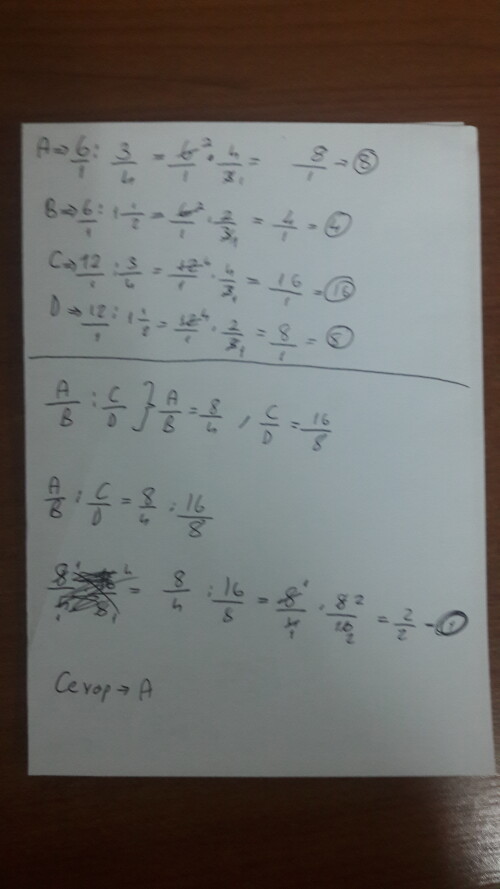 A⇒ 6/1 : 3/4 = 6²/1 · 4/3₁ = 8/1 → 8
B⇒ 6/1 : 1 1/2 = 6²/1 · 2/3₁ = 4/1 = 4
C⇒ 12/1 : 3/4 = 12⁴/1 · 4/3₁ = 16/1 = 16
D⇒ 12/1 : 1 1/2 = 12⁴/1 · 2/3₁ = 8/1 = 8
A/B : C/D } A/B = 8/4 , C/D = 16/8
A/B : C/D = 8/4 : 16/8
= 8/4 : 16/8 = 8¹/4₁ · 8²/16₂ = 2/2 - 1
Cevap → A